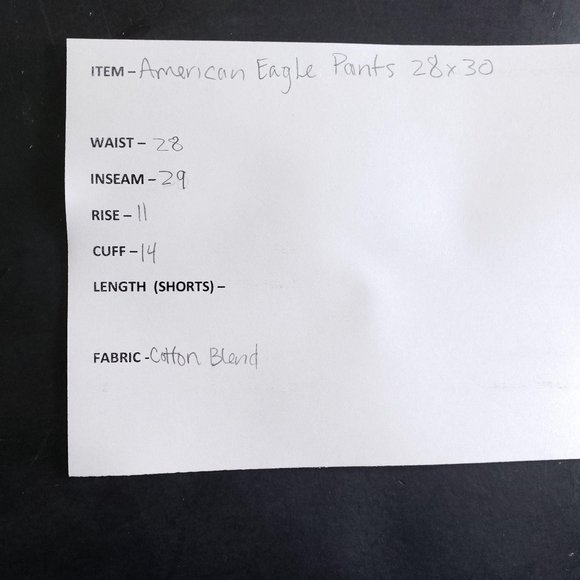 ITEM – American Eagle Pants 28x30
WAIST – 28
INSEAM – 29
RISE – 11
CUFF – 14
LENGTH (SHORTS) –
FABRIC - Cotton Blend